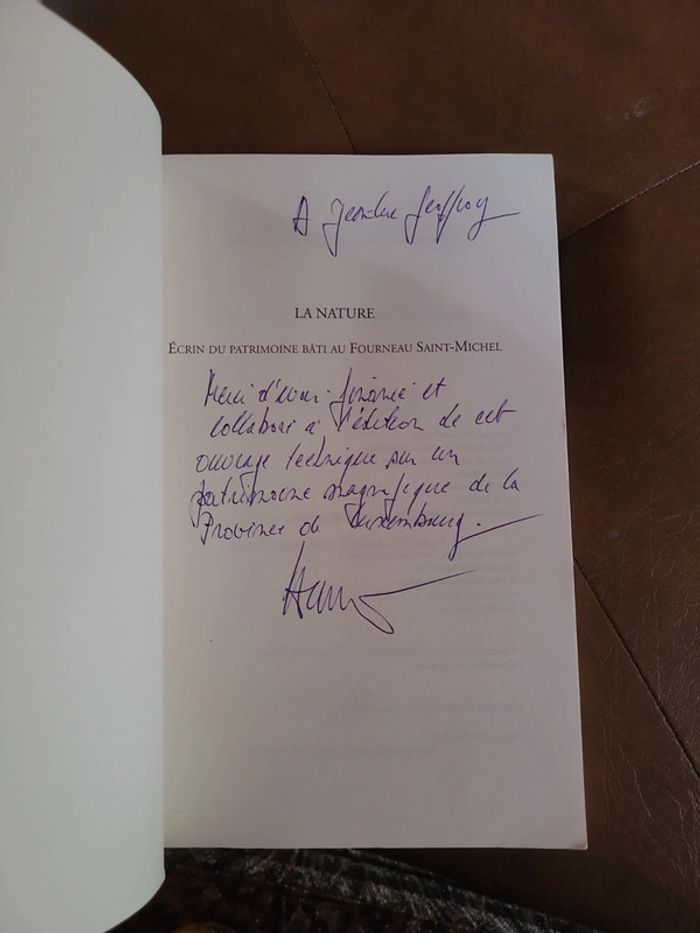 A Jean-Luc Geoffroy
LA NATURE
ÉCRIN DU PATRIMOINE BÂTI AU FOURNEAU SAINT-MICHEL
Merci d'avoir financé et
collaboré à l'édition de cet
ouvrage technique sur un
patrimoine magnifique de la
Province de Luxembourg.